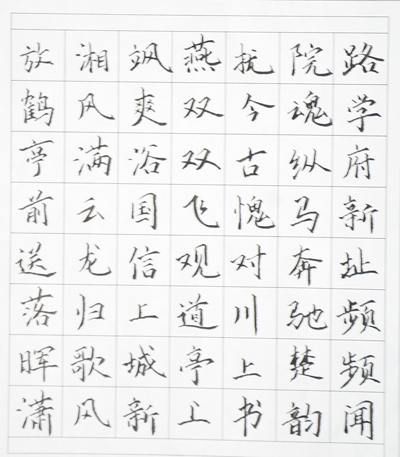 放鹤亭前送落晖潇
湘风满云龙归歌风
飒爽浴国信上城新
燕双双飞观道亭上
抗今古愧对川上书
院魂纵马奔驰楚韵
路学府新址频频闻